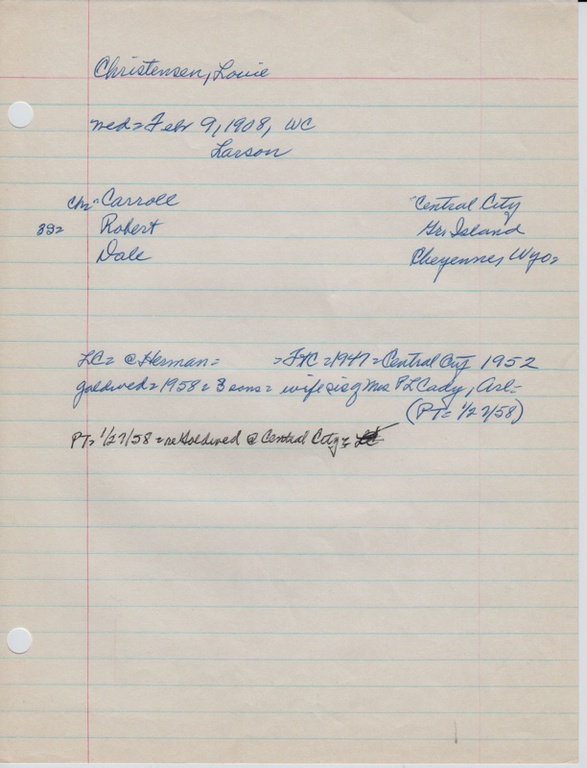 Christensen, Louie
med = Febr 9, 1908, WC
Larson
Chr= Carroll Central City
392 Robert Gr. Island
Dale Cheyenne, Wyo=
LC = @ Herman = = = 1947 = Central City 1952
goldwed = 1958 = 3 sons = wife sis of Mrs P L Cady, Arl=
(PT= 1/27/58)
PT= 1/27/58 = re Goldwed @ Central City =